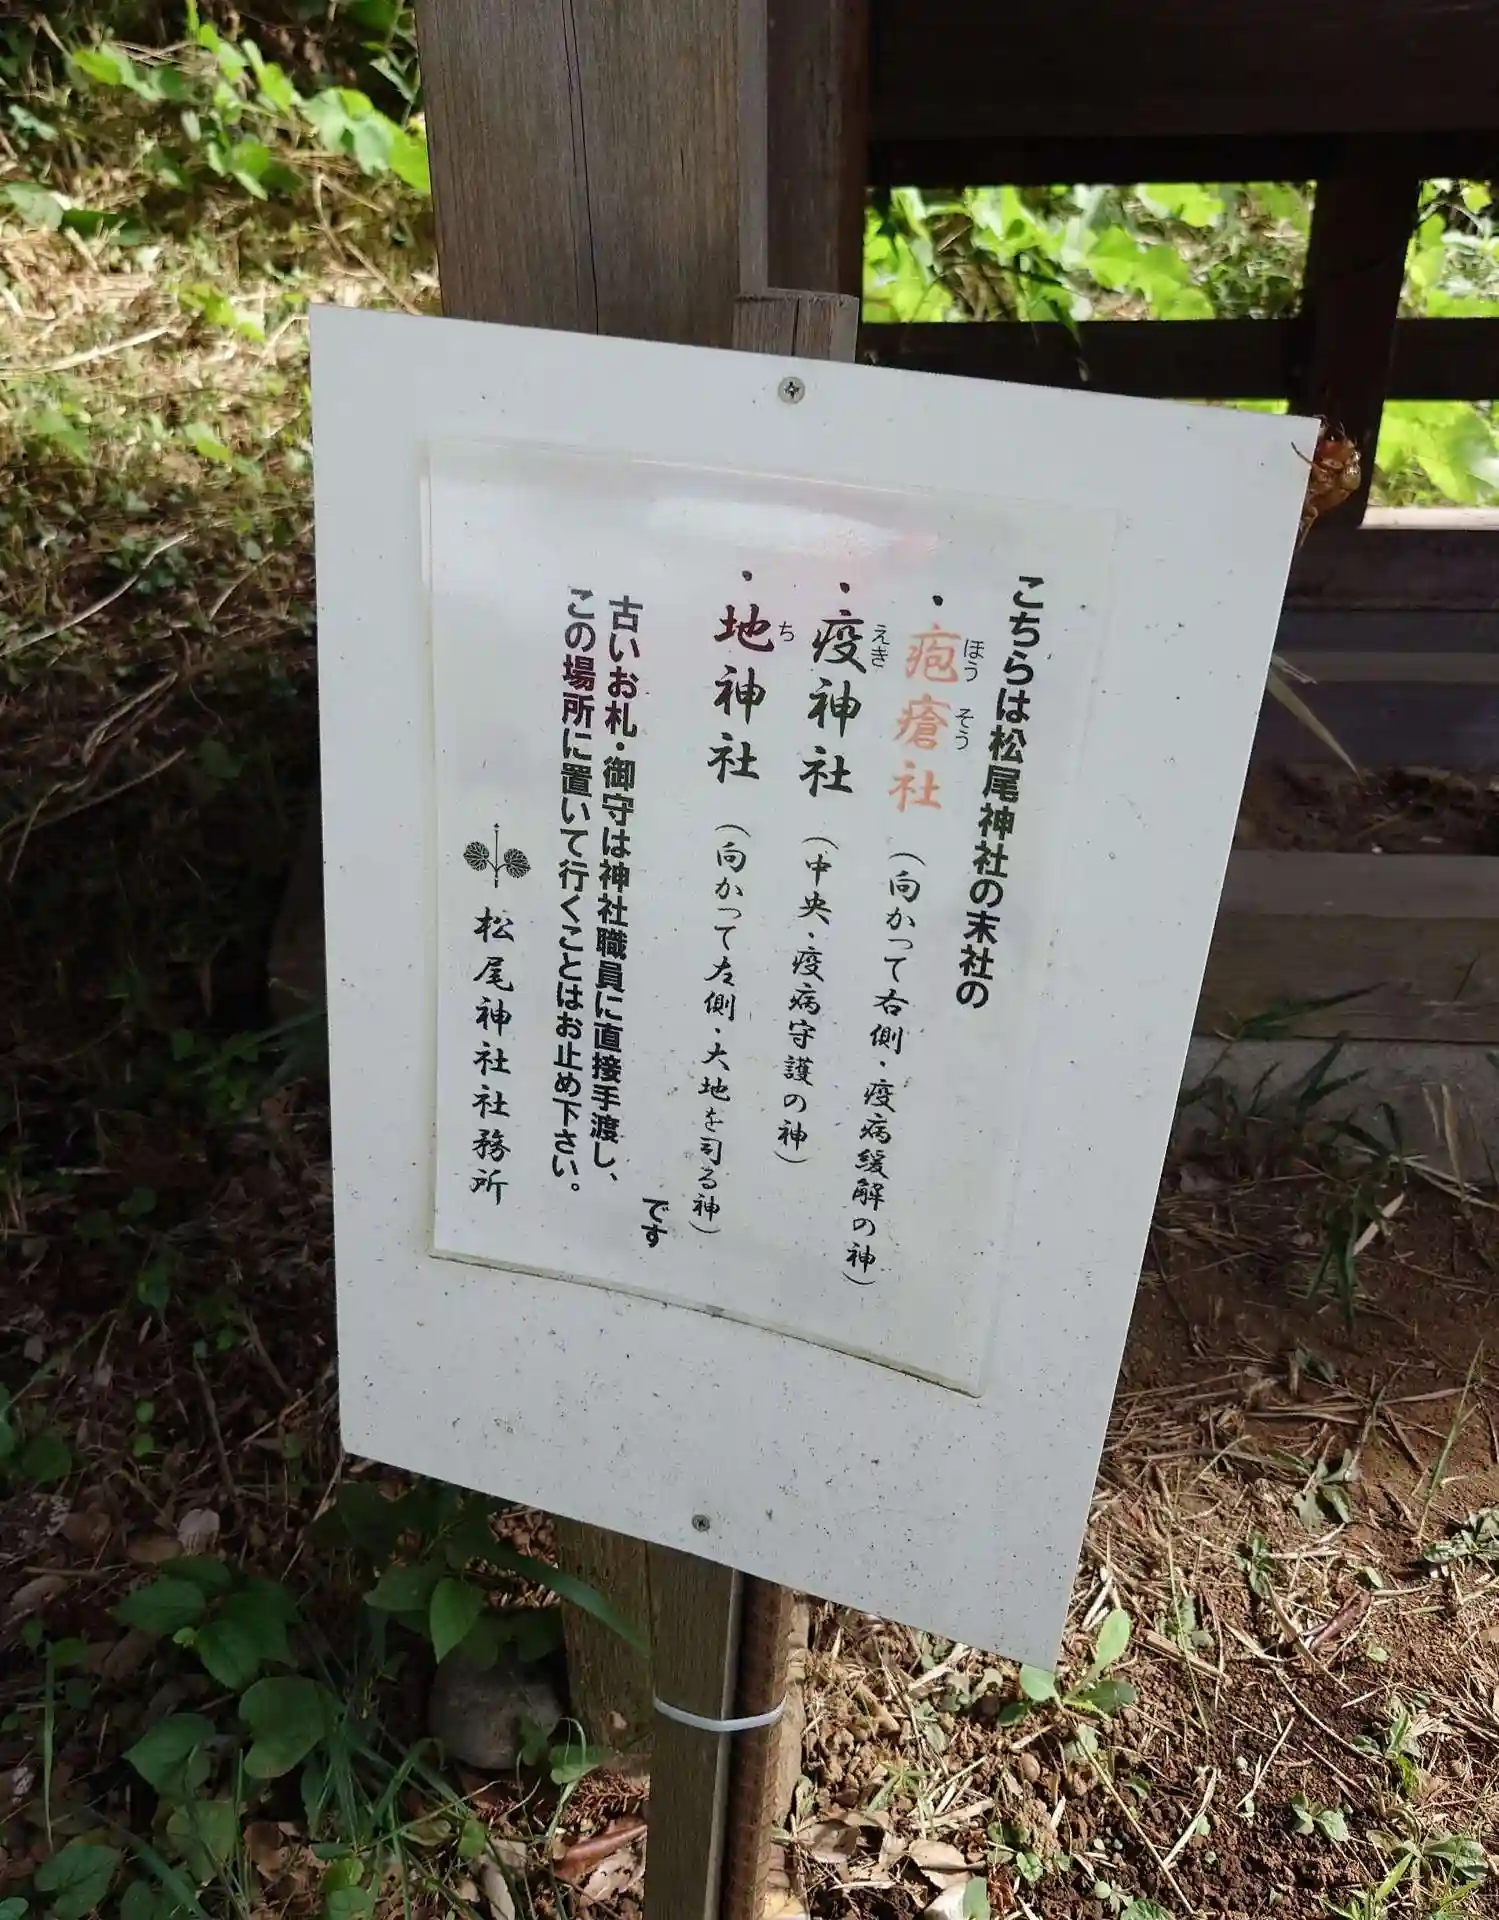 こちらは松尾神社の末社の
・疱瘡社(向かって右側・疫病緩解の神)
ほう そう
・疫神社(中央・疫病守護の神)
えき
・地神社(向かって左側・大地を司る神)
ち
です
古いお札・御守は神社職員に直接手渡し、
この場所に置いて行くことはお止め下さい。
松尾神社社務所